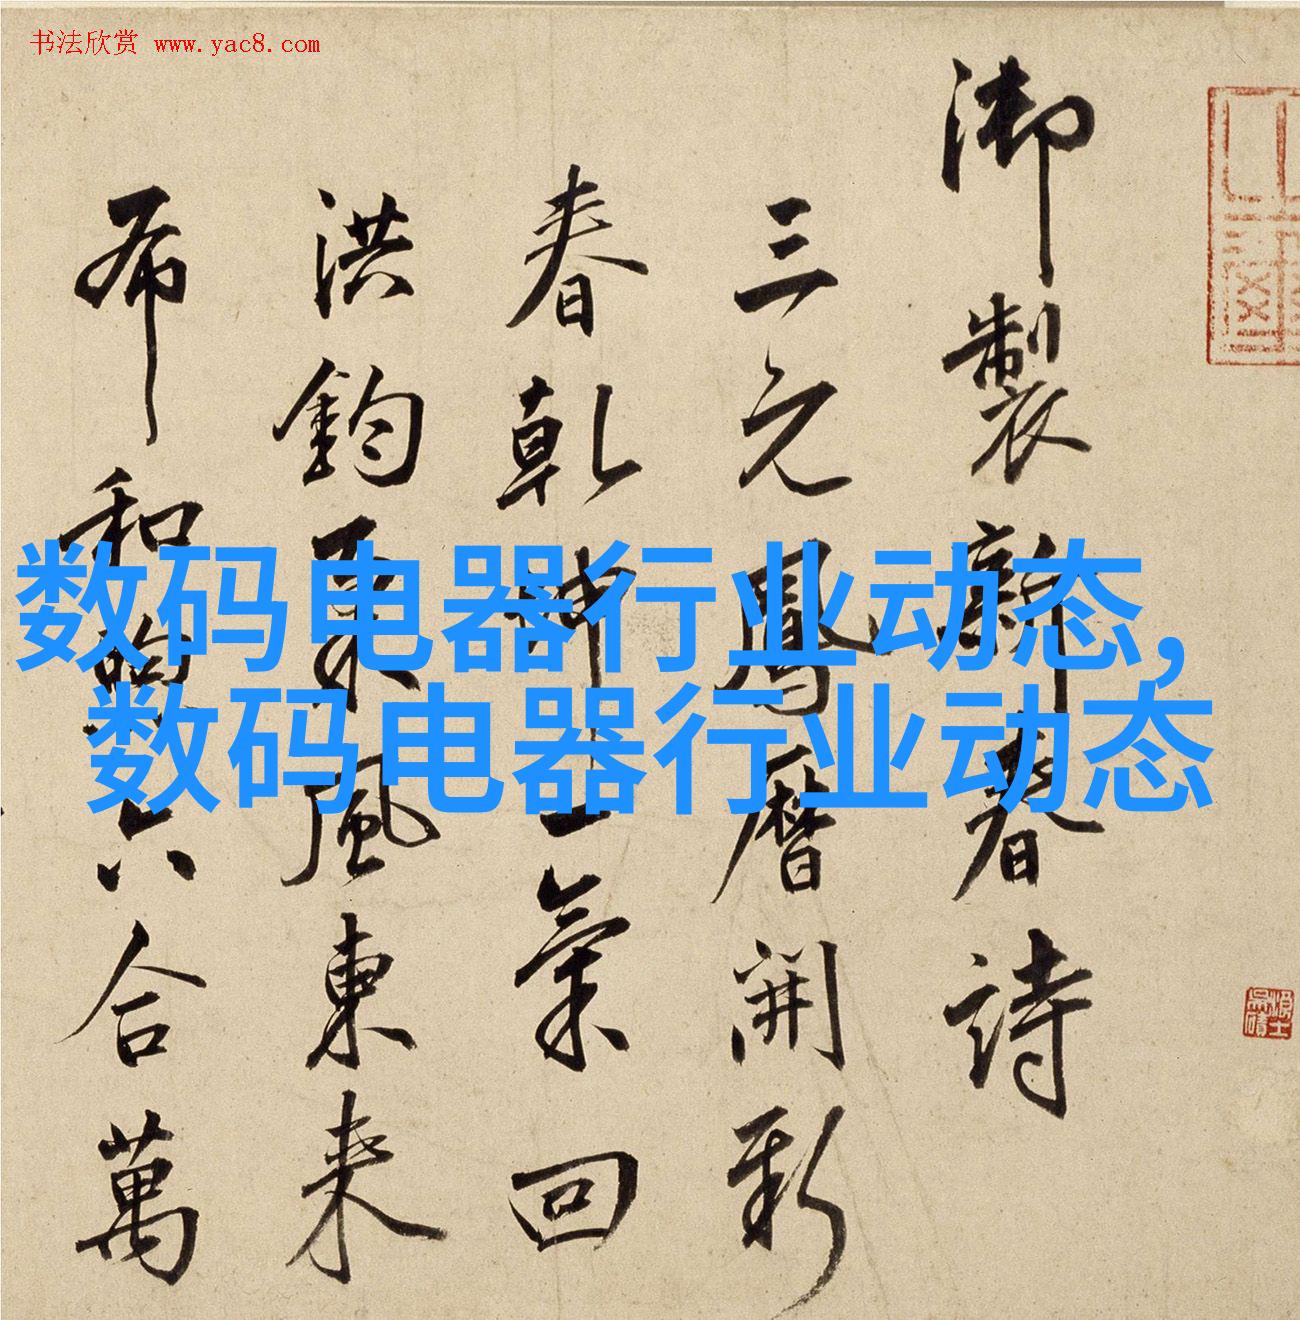 书法欣赏 www.yac8.com
数码电器行业动态,
数码电器行业动态
御製新春詩
三元鳳暦開新
春乾坤一氣回
洪鈞風東来
布和六合萬